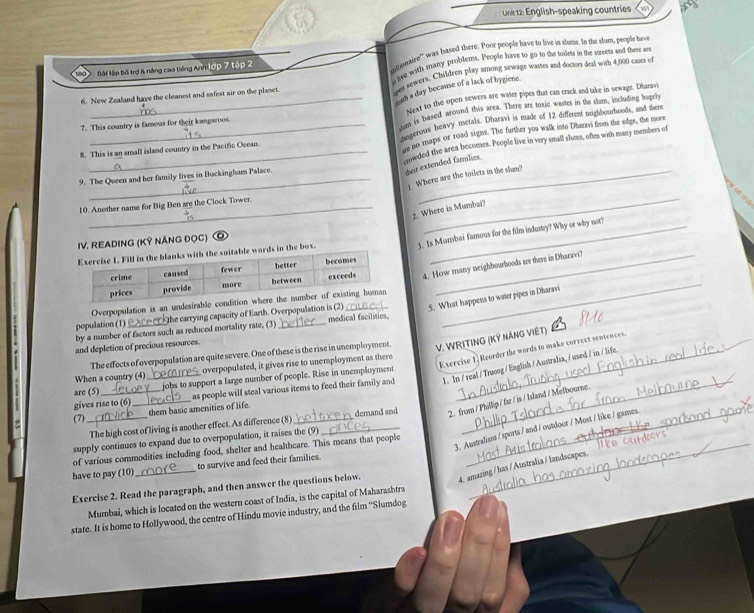 180 Bài tập bổ trợ & nâng cao tiếng Anh lớp 7 tập 2
6. New Zealand have the cleanest and safest air on the planet.
has
7. This country is famous for their kangaroos.
its
8. This is an small island country in the Pacific Ocean.
a
9. The Queen and her family lives in Buckingham Palace.
live
10. Another name for Big Ben are the Clock Tower.
is
IV. READING (KỸ NĂNG ĐỌC)
Exercise 1. Fill in the blanks with the suitable words in the box.
crime caused fewer better becomes
prices provide more between exceeds
Overpopulation is an undesirable condition where the number of existing human
population (1) exceeds the carrying capacity of Earth. Overpopulation is (2) caused
by a number of factors such as reduced mortality rate, (3) better medical facilities,
and depletion of precious resources.
The effects of overpopulation are quite severe. One of these is the rise in unemployment.
When a country (4) becomes overpopulated, it gives rise to unemployment as there
are (5) fewer jobs to support a large number of people. Rise in unemployment
gives rise to (6) as people will steal various items to feed their family and
(7) provide them basic amenities of life.
The high cost of living is another effect. As difference (8) between demand and
supply continues to expand due to overpopulation, it raises the (9) prices
of various commodities including food, shelter and healthcare. This means that people
have to pay (10) more to survive and feed their families.
Exercise 2. Read the paragraph, and then answer the questions below.
Mumbai, which is located on the western coast of India, is the capital of Maharashtra
state. It is home to Hollywood, the centre of Hindu movie industry, and the film "Slumdog
Unit 12: English-speaking countries 181
Millionaire" was based there. Poor people have to live in slums. In the slum, people have
to live with many problems. People have to go to the toilets in the streets and there are
open sewers. Children play among sewage wastes and doctors deal with 4,000 cases of
a day because of a lack of hygiene.
Next to the open sewers are water pipes that can crack and take in sewage. Dharavi
slum is based around this area. There are toxic wastes in the slum, including hugely
dangerous heavy metals. Dharavi is made of 12 different neighbourhoods, and there
are no maps or road signs. The further you walk into Dharavi from the edge, the more
crowded the area becomes. People live in very small slums, often with many members of
their extended families.
1. Where are the toilets in the slum?
2. Where is Mumbai?
3. Is Mumbai famous for the film industry? Why or why not?
4. How many neighbourhoods are there in Dharavi?
5. What happens to water pipes in Dharavi
V. WRITING (KỸ NĂNG VIẾT)
Exercise 1. Reorder the words to make correct sentences.
1. In / real / Truong / English / Australia, / used / in / life.
In Australia, Truong used English in real life.
2. from / Phillip / far / is / Island / Melbourne.
Phillip Island is far from Melbourne
3. Australians / sports / and / outdoor / Most / like / games.
Most Australians like outdoors sports and games
4. amazing / has / Australia / landscapes.
Australia has amazing landscapes